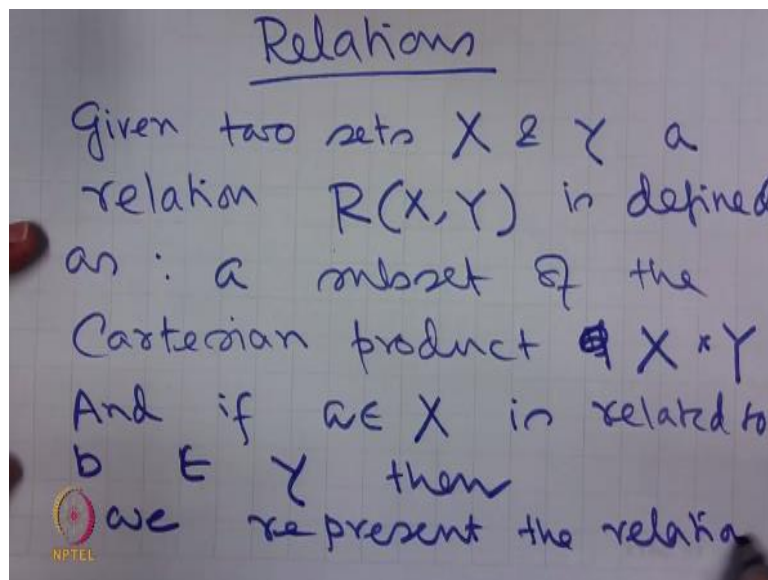 Relations
Given two sets X & Y a
relation R(X, Y) is defined
as : a subset of the
Cartesian product X * Y
And if a ∈ X is related to
b ∈ Y then
we represent the relatio
NPTEL